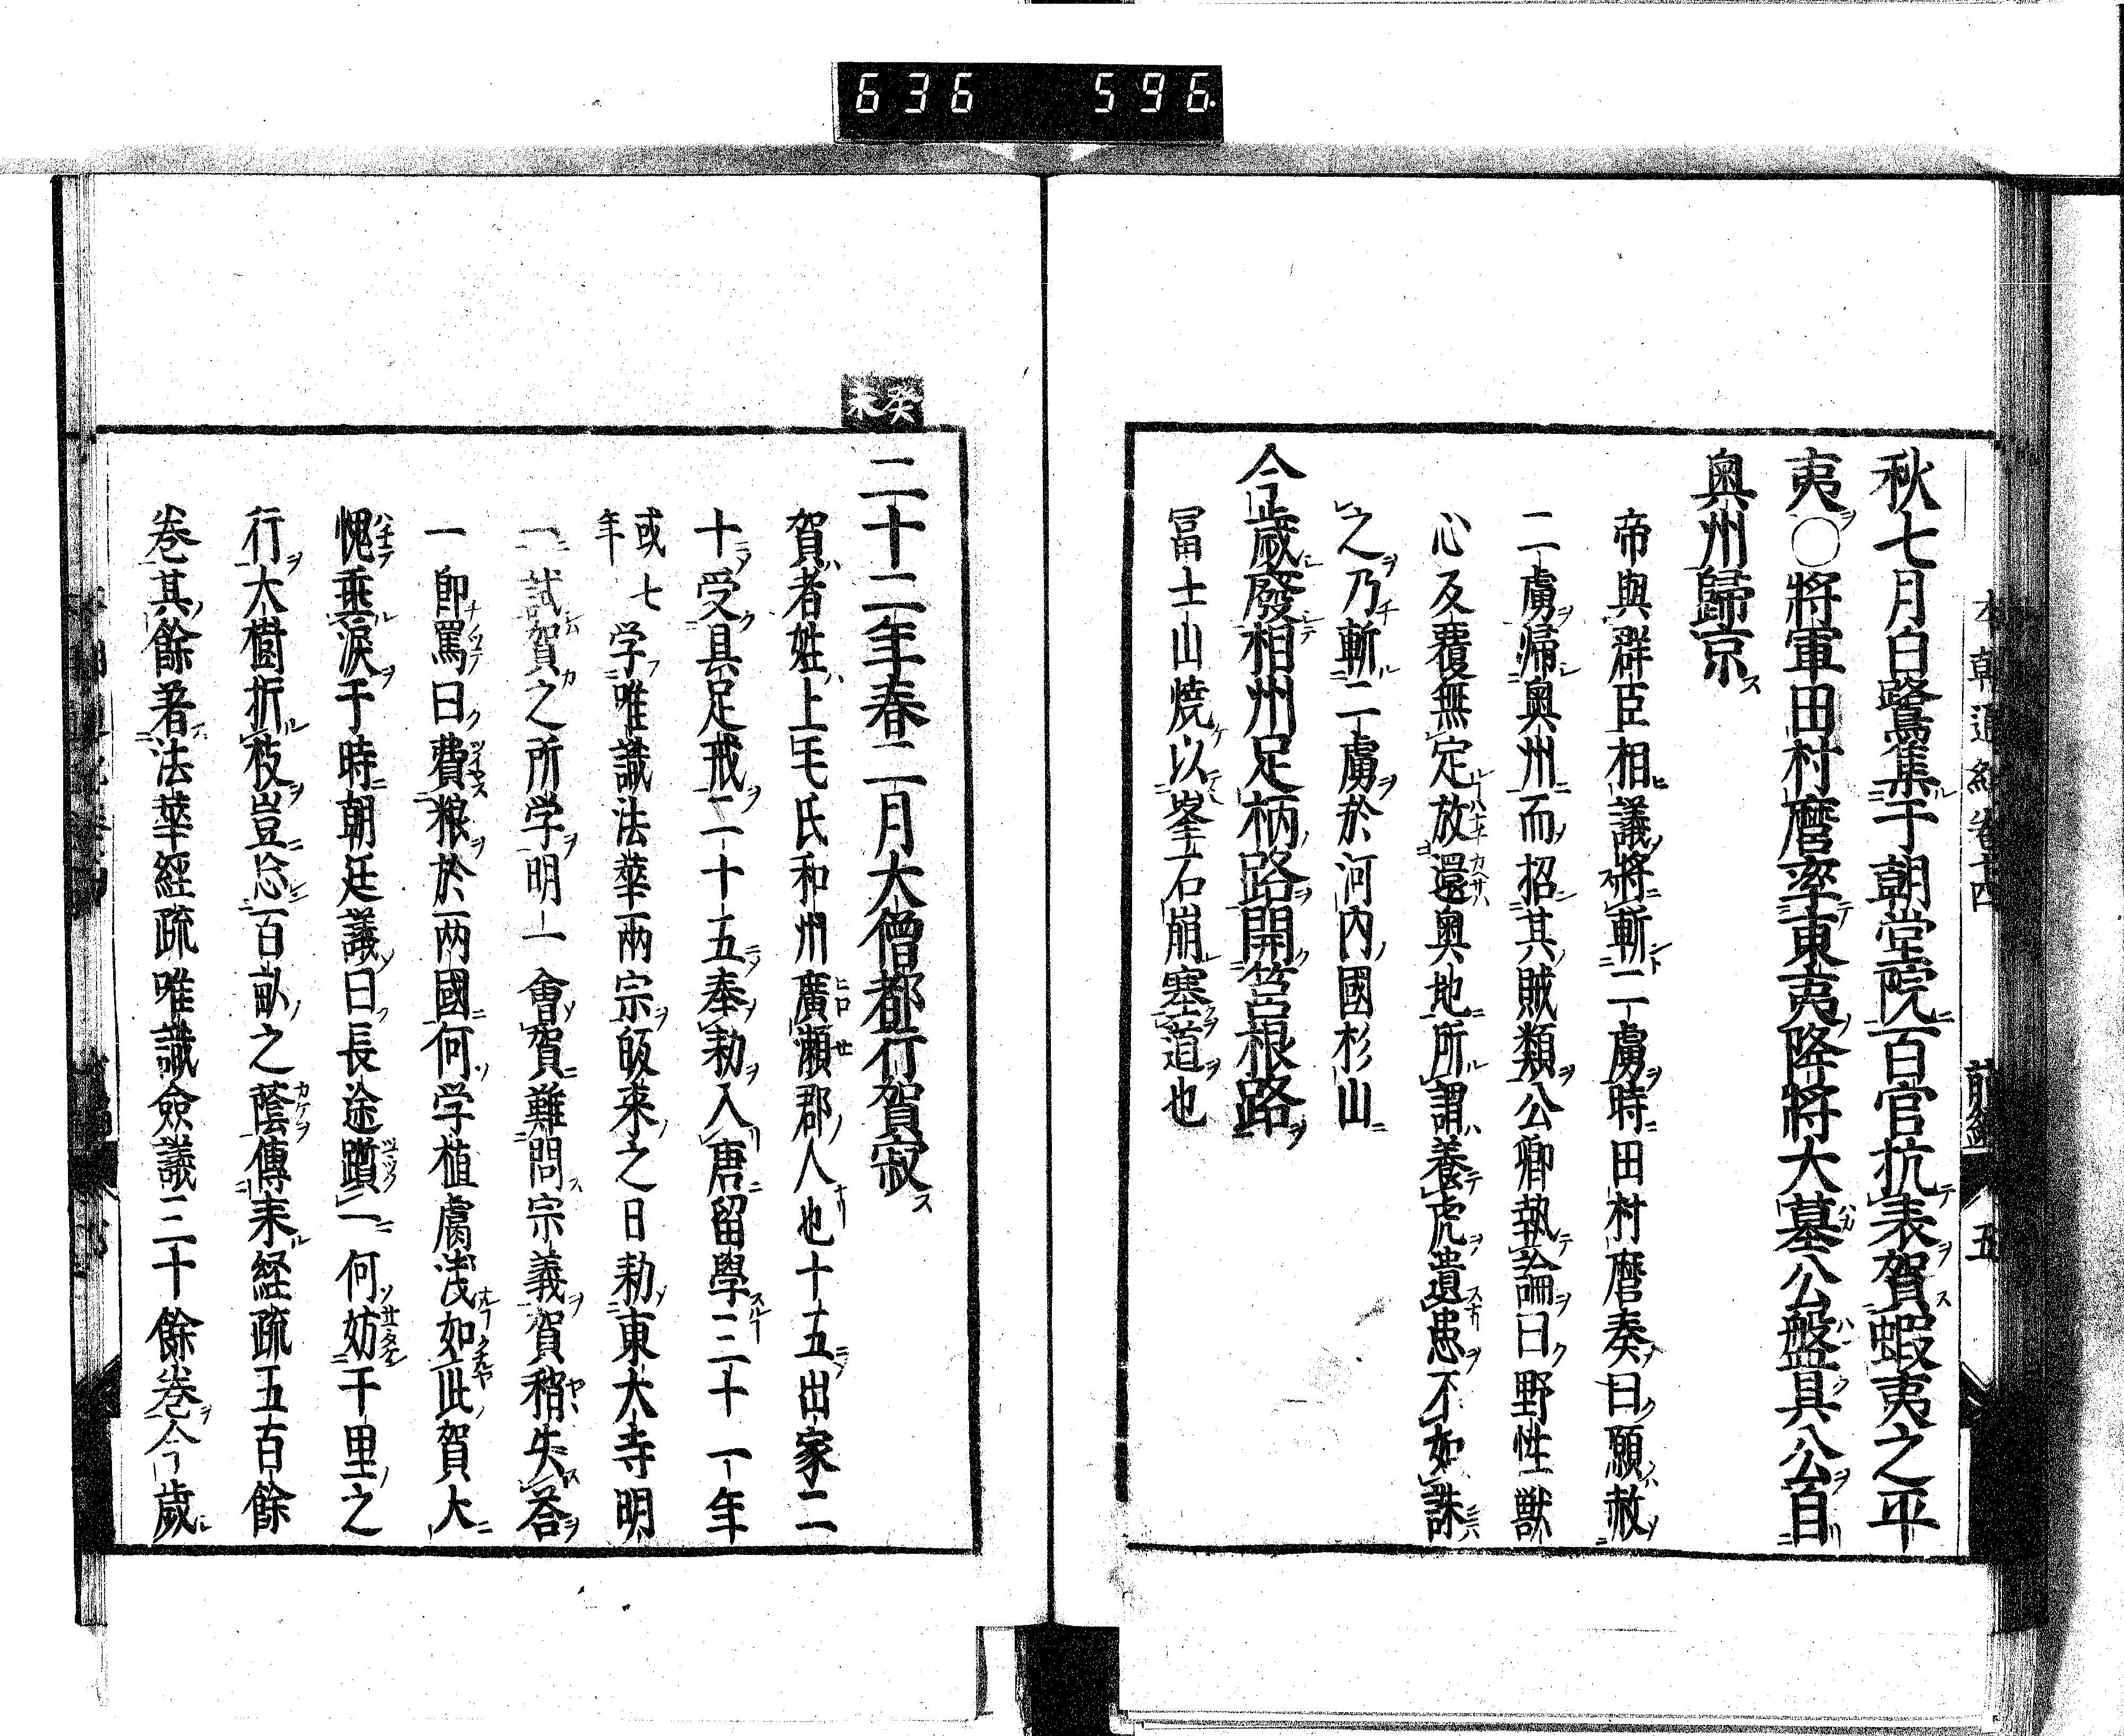 636 596
本朝通紀卷十四 前編 五
秋七月白鷺集于朝堂院百官抗表賀蝦夷之平
夷○將軍田村麿率東夷降將大墓公盤具公自
奥州歸京
帝與群臣相議將斬二虜時田村麿奏曰願赦
二虜帰奥州而招其賊類公卿執論曰野性獣
心反覆無定放還奥地所謂養虎遺患不如誅
之乃斬二虜於河內國杉山
今歳廢相州足柄路開筥根路
冨士山燒以峯石崩塞道也
癸未
二十二年春二月大僧都行賀寂
賀者姓上毛氏和州廣瀬郡人也十五出家二
十受具足戒二十五奉勅入唐留學三十一年
或七年学唯識法華兩宗皈来之日勅東大寺明
一試賀之所学明一會賀難問宗義賀稍失荅
一卽罵曰費粮於兩國何学植膚浅如此賀大
愧垂淚于時朝廷議曰長途躓一何妨千里之
行大樹折枝豈忘百畝之蔭傳来経疏五百餘
卷其餘著法華經疏唯識僉議三十餘卷今歲